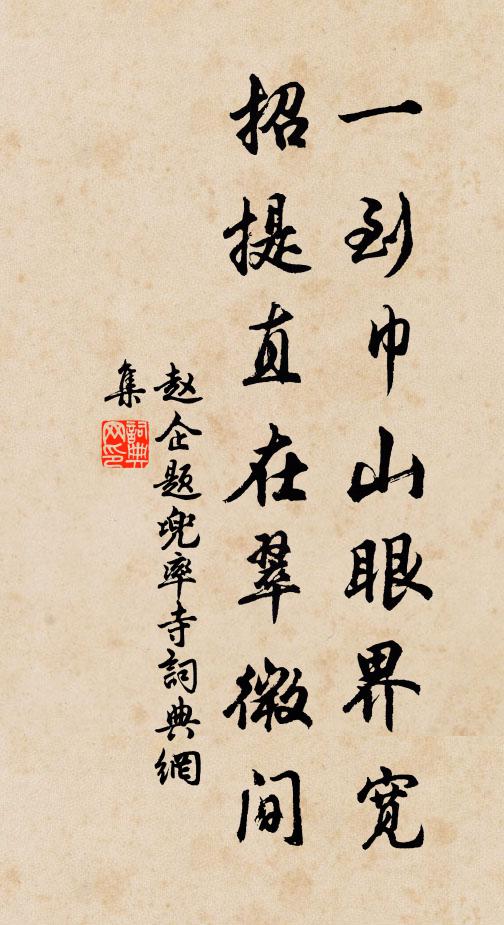 一到巾山眼界寬
招提直在翠微間
赵企题兜率寺詞典網
集
詞典
网印